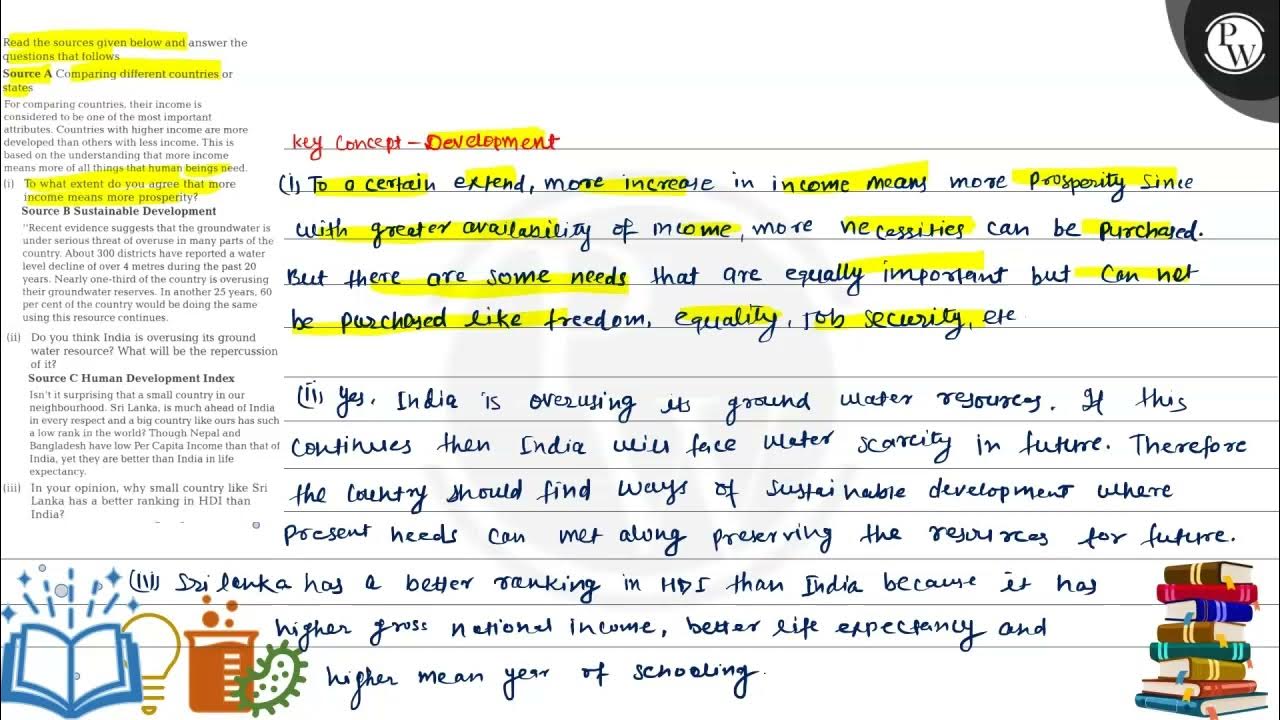 Read the sources given below and answer the
questions that follows
Source A Comparing different countries or
states
For comparing countries, their income is
considered to be one of the most important
attributes. Countries with higher income are more
developed than others with less income. This is
based on the understanding that more income
means more of all things that human beings need.
(i) To what extent do you agree that more
income means more prosperity?
Source B Sustainable Development
"Recent evidence suggests that the groundwater is
under serious threat of overuse in many parts of the
country. About 300 districts have reported a water
level decline of over 4 metres during the past 20
years. Nearly one-third of the country is overusing
their groundwater reserves. In another 25 years, 60
per cent of the country would be doing the same
using this resource continues.
(ii) Do you think India is overusing its ground
water resource? What will be the repercussion
of it?
Source C Human Development Index
Isn't it surprising that a small country in our
neighbourhood. Sri Lanka, is much ahead of India
in every respect and a big country like ours has such
a low rank in the world? Though Nepal and
Bangladesh have low Per Capita Income than that of
India, yet they are better than India in life
expectancy.
(iii) In your opinion, why small country like Sri
Lanka has a better ranking in HDI than
India?
PW
Key Concept - Development
(i) To a certain extend, more increase in income means more Prosperity since
with greater availability of income, more necessities can be purchased.
But there are some needs that are equally important but can not
be purchased like freedom, equality, Job security, etc
(ii) Yes. India is overusing its ground water resources. If this
continues then India will face water scarcity in future. Therefore
the country should find ways of sustainable development where
present needs can met along preserving the resources for future.
(iii) Sri lanka has a better ranking in HDI than India because it has
higher gross national income, better life expectancy and
higher mean year of schooling.